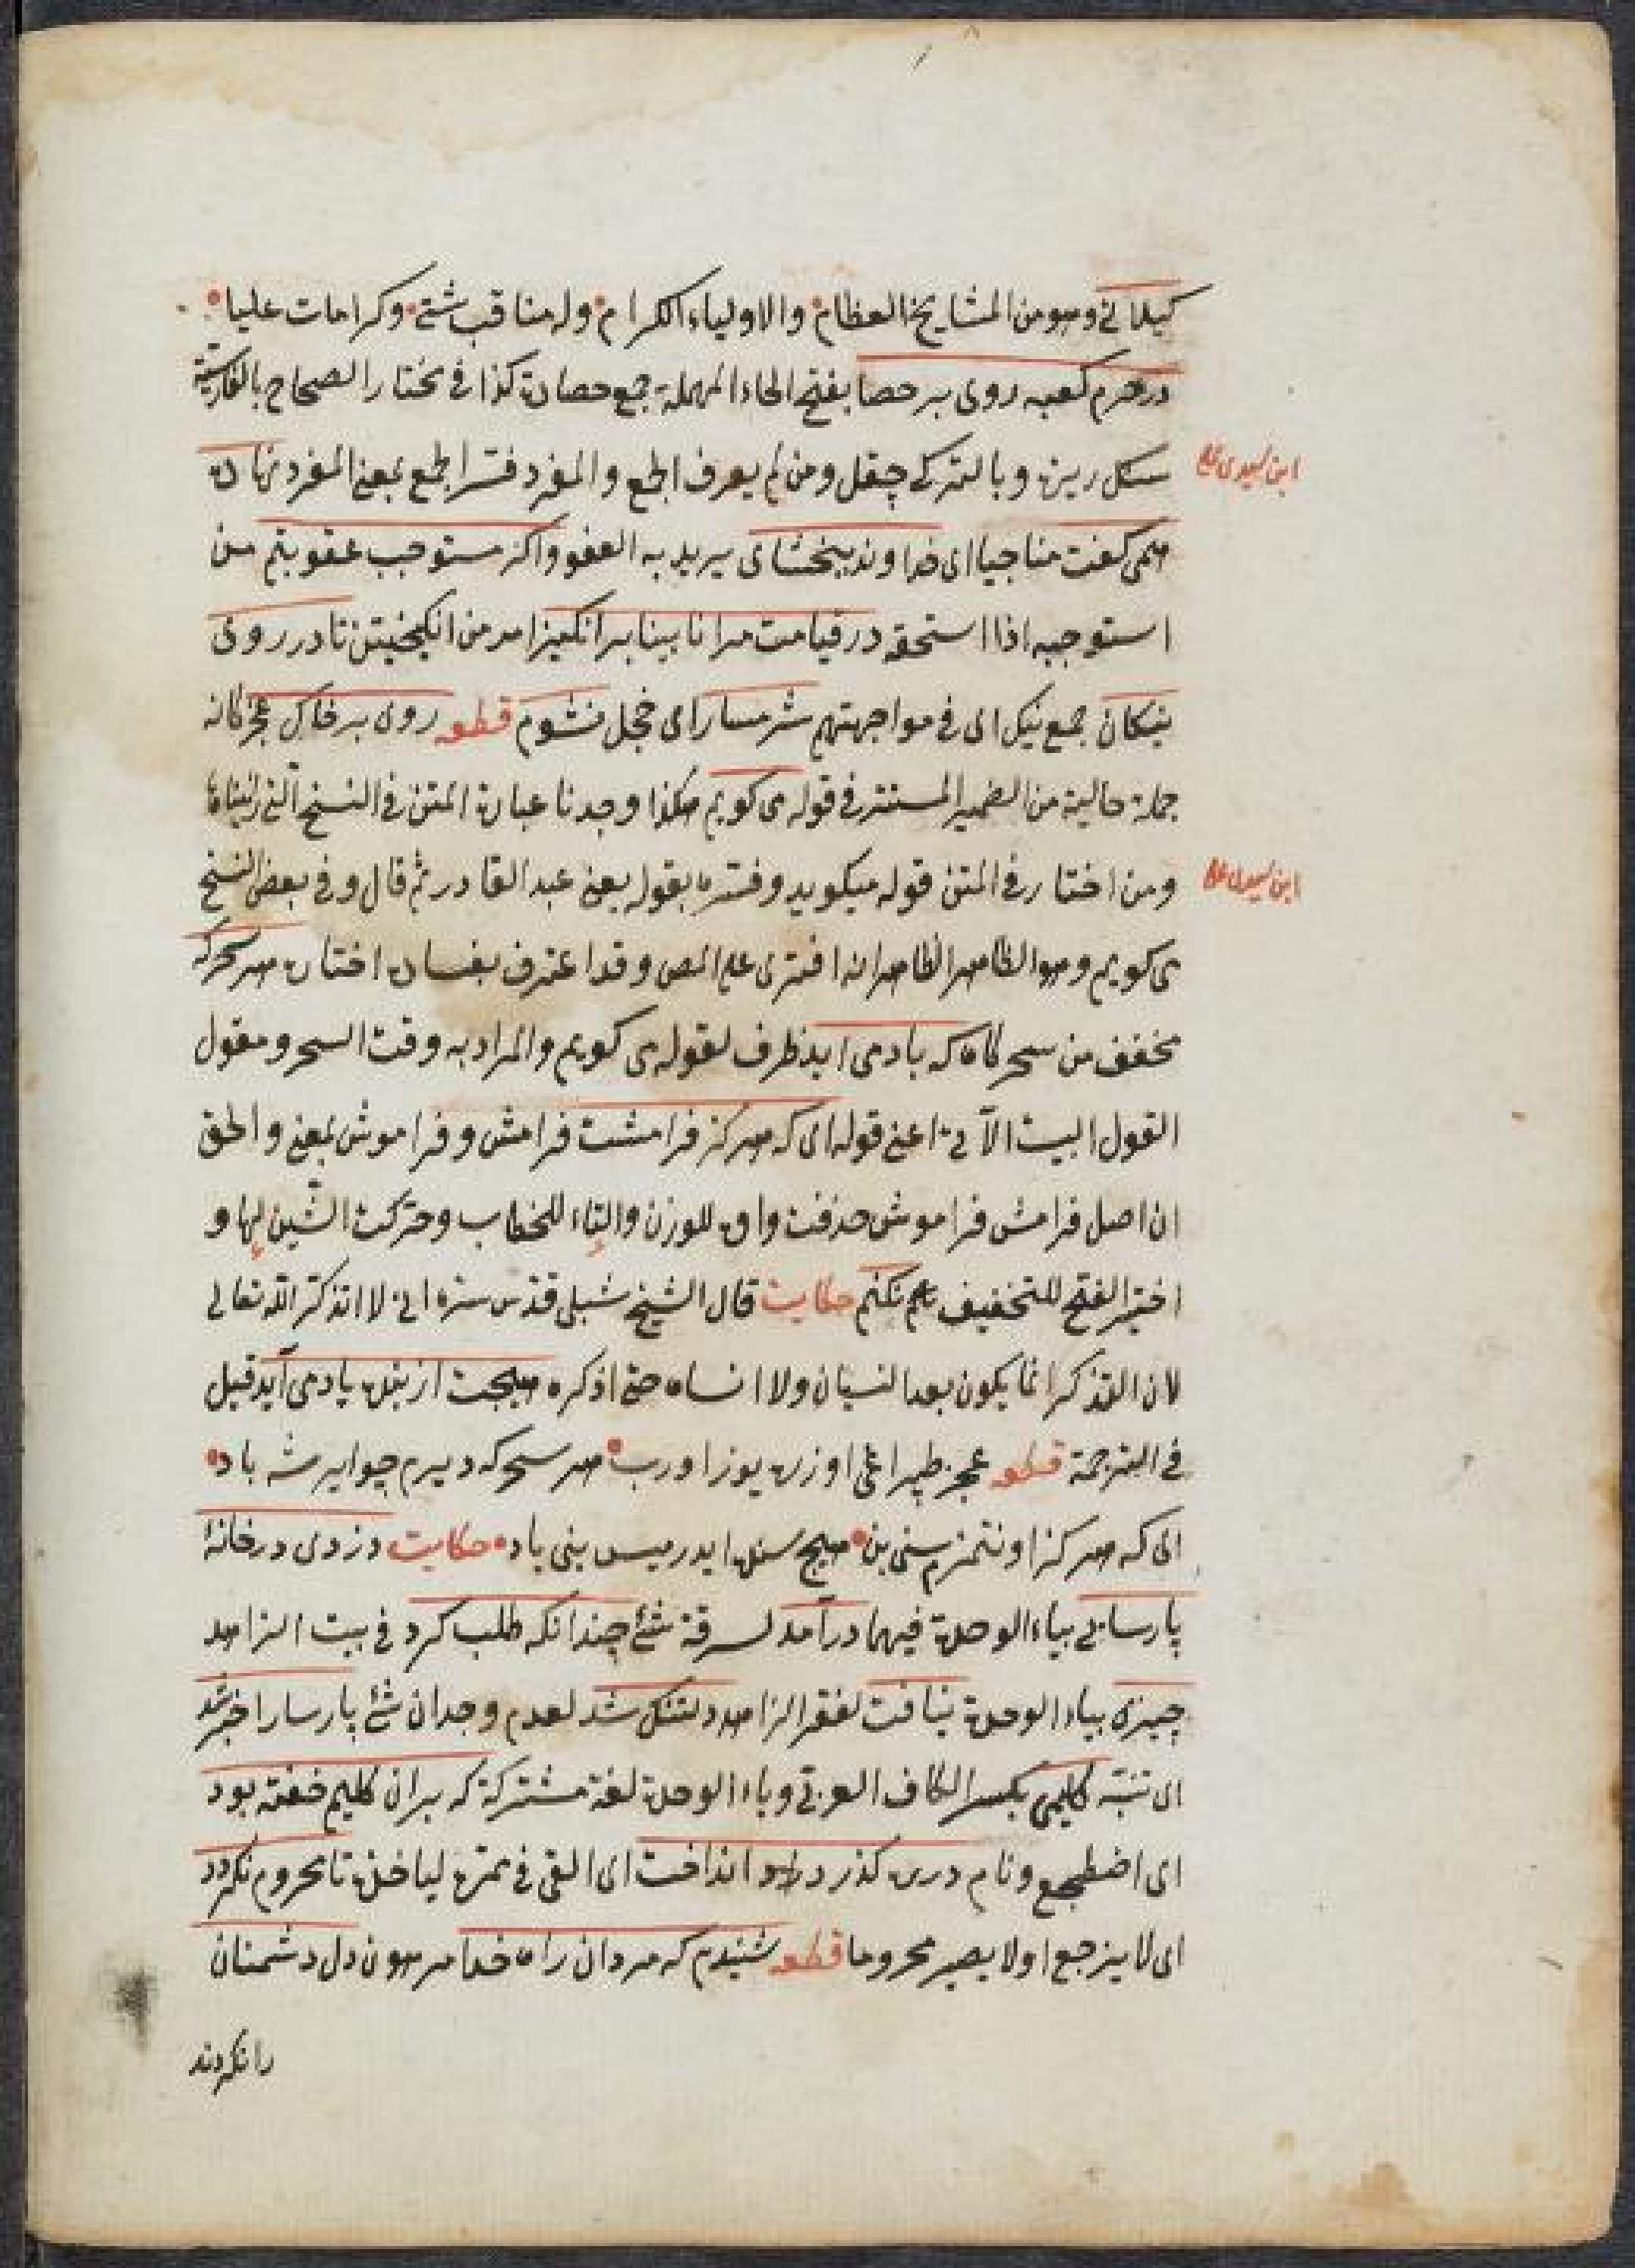 كيلانى وهو من المشايخ العظام والاولياء الكرام وله مناقب شتى وكرامات عليا
در حرم كعبه روى بر حصا بفتح الحاء المهملة جمع حصاة كذا فى مختار الصحاح بالفارسية
سنكل ريزه وبالتركى چقل ومن لم يعرف الجمع والمفرد فسر الجمع بمعنى المفرد نهاده
ابن سيدى على
همى كفت مناجيا اى خداوند ببخشاى يريد به العفو واكر مستوجب عقوبتم من
استوجبه اذا استحقه در قيامت مرا نابينا برانكيز امر من انكيختن تا در روى
نيكان جمع نيك اى فى مواجهتهم شرمسار اى خجل نشوم قطعه روى بر خاك عجز كانه
جملة حالية من الضمير المستتر فى قوله مى كويم هكذا وجدنا عبارة المتن فى النسخ التى رايناها
ومن اختار فى المتن قوله ميكويد وفسره بقوله يعنى عبد القادر ثم قال وفى بعض النسخ
ابن سيدى على
مى كويم وهو الظاهر الظاهر انه افترى على المص وقد اعترف بفساد اختاره هر سحركه
مخفف من سحركاه كه باد مى آيد ظرف لقوله مى كويم والمراد به وقت السحر ومقول
القول البيت الآتى اعنى قوله اى كه هركز فرامشت فرامش وفراموش بمعنى والحق
ان اصل فرامش فراموش حذفت واوه للوزن والتاء للخطاب وحركت الشين لها و
اختير الفتح للتخفيف نكنم حكايت قال الشيخ شبلى قدس سره انى لا اتذكر الله تعالى
لان التذكر انما يكون بعد النسيان ولا انساه حتى اذكره هيچت از بنده ياد مى آيد قيل
فى الترجمة قطعه عجز طپراغى اوزره يوز اورب هر سحركه ديرم چو ايرشه باد
اى كه هركز اونتمزم سنى بن هيچ سنه ايدرميسن بنى ياد حكايت دزدى در خانهٔ
پارسايى بياء الوحدة فيهما درآمد لسرقة شئ چندانكه طلب كرد فى بيت الزاهد
چيزى بياء الوحدة نيافت لفقر الزاهد دلتنك شد لعدم وجدان شئ پارسا را خبر شد
اى تنبه كليمى بكسر الكاف العربى وياء الوحدة لغة مشتركة كه بران كليم خفته بود
اى اضطجع ونام دره كذر دزد انداخت اى القى فى ممره لياخذه تا محروم نكردد
اى لا يرجع او لا يصير محروما قطعه شنيدم كه مردان راه خدا مرهون دل دشمنان
را نكردند